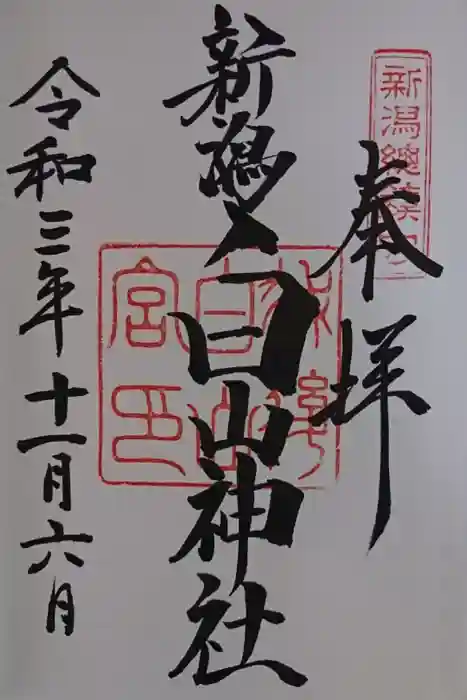 奉拝
新潟総鎮守
新潟
白山神社
令和三年十一月六月